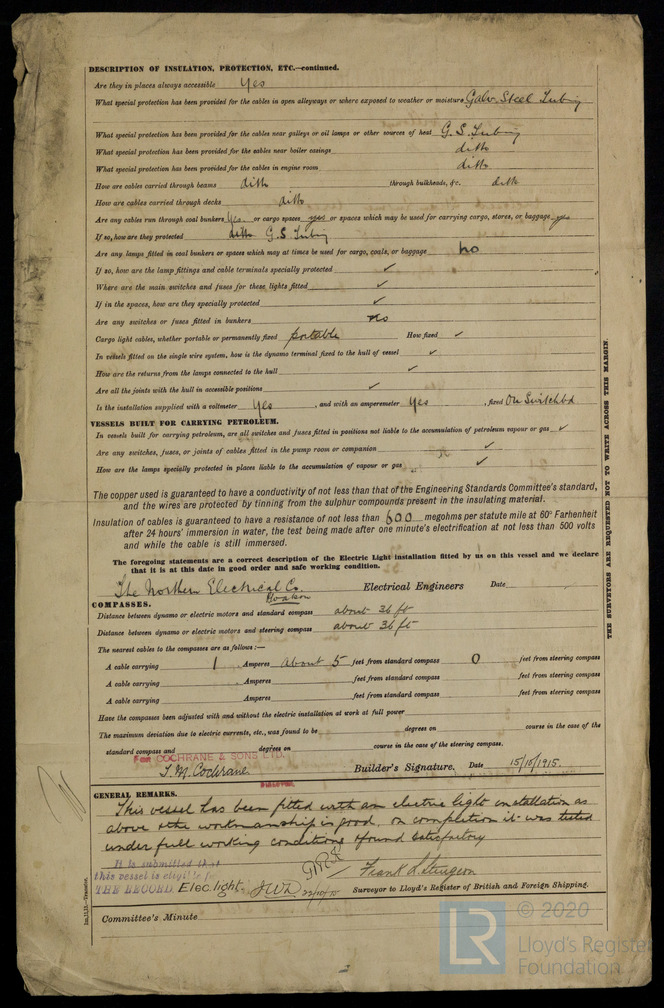 DESCRIPTION OF INSULATION, PROTECTION, ETC.—continued.
Are they in places always accessible Yes
What special protection has been provided for the cables in open alleyways or where exposed to weather or moisture Galv. Steel Tubing
What special protection has been provided for the cables near galleys or oil lamps or other sources of heat G.S. Tubing
What special protection has been provided for the cables near boiler casings ditto
What special protection has been provided for the cables in engine room ditto
How are cables carried through beams ditto through bulkheads, &c. ditto
How are cables carried through decks ditto
Are any cables run through coal bunkers Yes. or cargo spaces yes or spaces which may be used for carrying cargo, stores, or baggage yes
If so, how are they protected ditto G.S Tubing
Are any lamps fitted in coal bunkers or spaces which may at times be used for cargo, coals, or baggage no
If so, how are the lamp fittings and cable terminals specially protected ✓
Where are the main switches and fuses for these lights fitted ✓
If in the spaces, how are they specially protected ✓
Are any switches or fuses fitted in bunkers no
Cargo light cables, whether portable or permanently fixed portable How fixed ✓
In vessels fitted on the single wire system, how is the dynamo terminal fixed to the hull of vessel ✓
How are the returns from the lamps connected to the hull ✓
Are all the joints with the hull in accessible positions ✓
Is the installation supplied with a voltmeter Yes , and with an amperemeter Yes , fixed On Switchbd
VESSELS BUILT FOR CARRYING PETROLEUM.
In vessels built for carrying petroleum, are all switches and fuses fitted in positions not liable to the accumulation of petroleum vapour or gas ✓
Are any switches, fuses, or joints of cables fitted in the pump room or companion ✓
How are the lamps specially protected in places liable to the accumulation of vapour or gas ✓
The copper used is guaranteed to have a conductivity of not less than that of the Engineering Standards Committee's standard,
and the wires are protected by tinning from the sulphur compounds present in the insulating material.
Insulation of cables is guaranteed to have a resistance of not less than 600 megohms per statute mile at 60° Farhenheit
after 24 hours' immersion in water, the test being made after one minute's electrification at not less than 500 volts
and while the cable is still immersed.
The foregoing statements are a correct description of the Electric Light installation fitted by us on this vessel and we declare
that it is at this date in good order and safe working condition.
The Northern Electrical Co. Electrical Engineers Date
COMPASSES.
Distance between dynamo or electric motors and standard compass about 36 ft
Distance between dynamo or electric motors and steering compass about 36 ft
The nearest cables to the compasses are as follows:—
A cable carrying 1 Amperes about 5 feet from standard compass 0 feet from steering compass
A cable carrying Amperes feet from standard compass feet from steering compass
A cable carrying Amperes feet from standard compass feet from steering compass
Have the compasses been adjusted with and without the electric installation at work at full power
The maximum deviation due to electric currents, etc., was found to be degrees on course in the case of the
standard compass and degrees on course in the case of the steering compass.
For COCHRANE & SONS LTD.
T. M. Cochrane. Builder's Signature. Date 15/10/1915.
DIRECTOR
GENERAL REMARKS.
This vessel has been fitted with an electric light installation as
above & the workmanship is good, on completion it was tested
under full working conditions & found satisfactory
It is submitted that
this vessel is eligible for
THE RECORD. Elec. light. JWD 22/10/15
Frank L. Sturgeon
Surveyor to Lloyd's Register of British and Foreign Shipping.
Committee's Minute
THE SURVEYORS ARE REQUESTED NOT TO WRITE ACROSS THIS MARGIN.
LR
© 2020
Lloyd's Register
Foundation